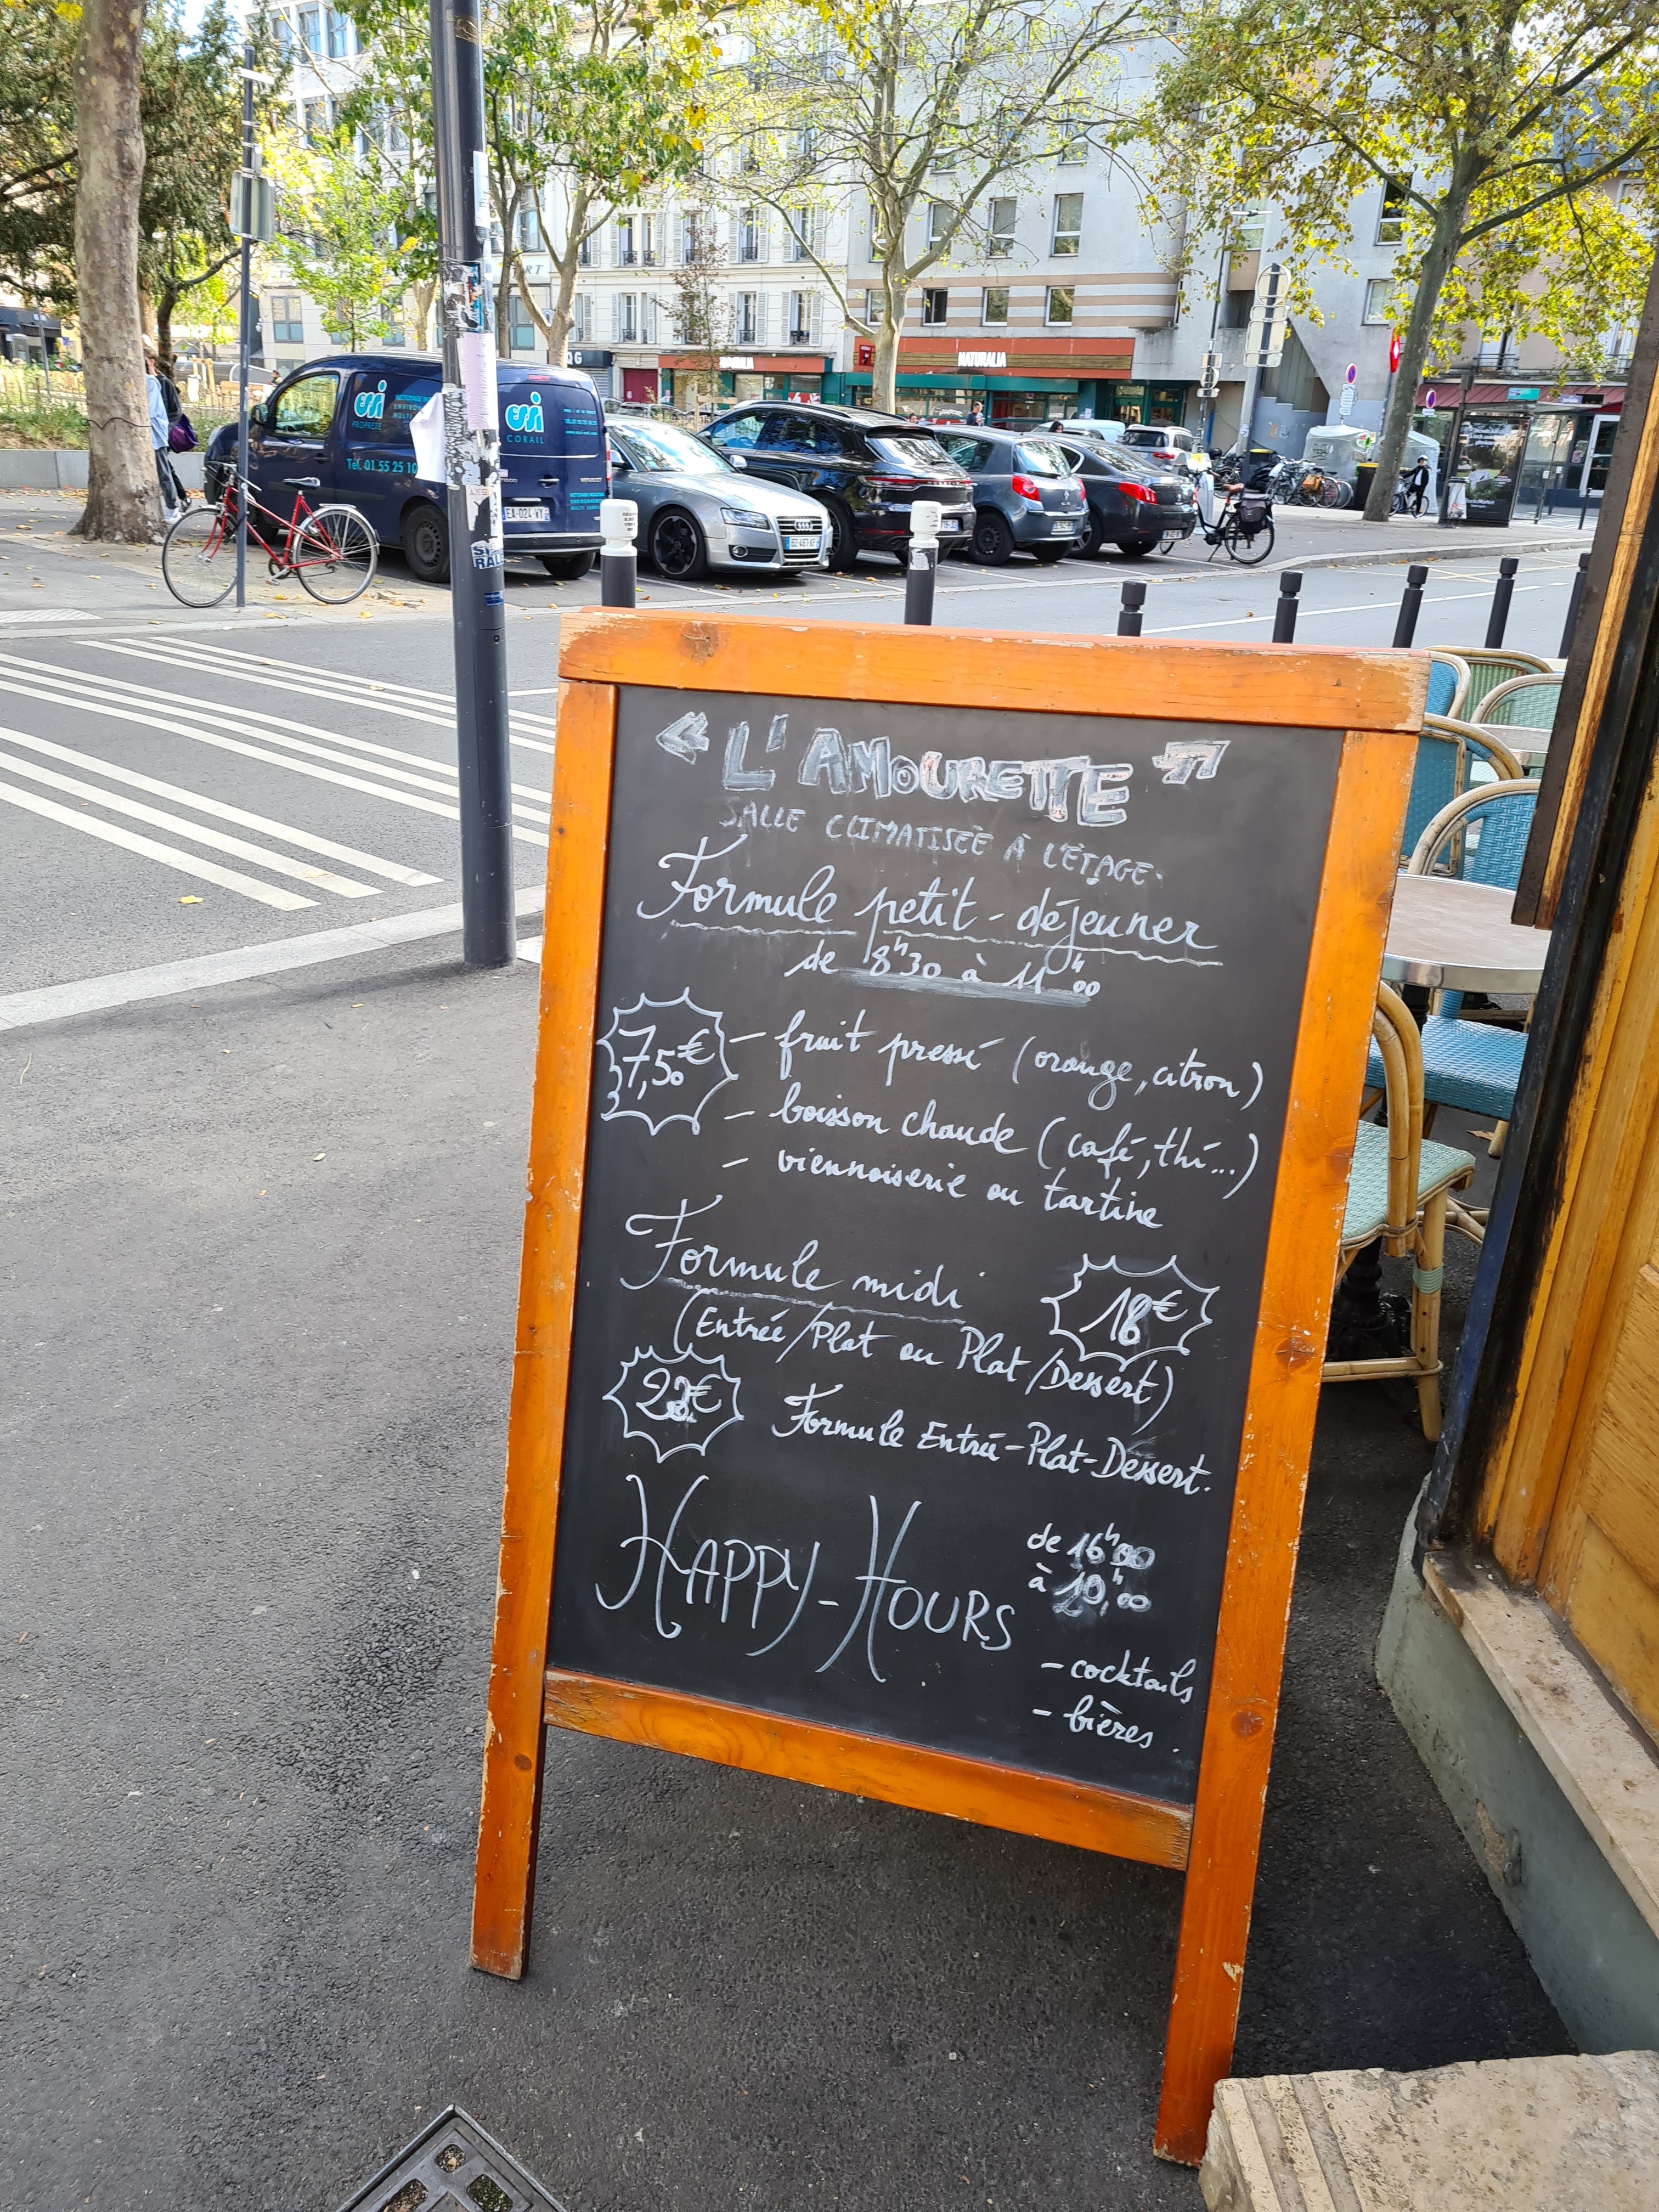 NATURALIA
QG
esi
PROPRETE
Tél. 01 55 25 10
esi
CORAIL
EA-024-VY
« L'AMOURETTE »
SALLE CLIMATISEE À L'ÉTAGE.
Formule petit-déjeuner
de 8h30 à 11h00
7,50€ - fruit pressé (orange, citron)
- boisson chaude (café, thé...)
- viennoiserie ou tartine
Formule midi 18€
(Entrée/Plat ou Plat/Dessert)
Formule Entrée-Plat-Dessert.
HAPPY-HOURS
de 16h00
à
- cocktails
- bières.